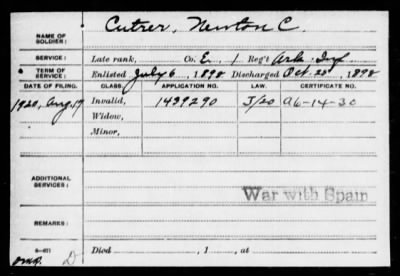 Cutrer, Newton C.
NAME OF SOLDIER:
SERVICE: Late rank, Co. E, 1 Reg't Ark. Inf
TERM OF SERVICE: Enlisted July 6, 1898 Discharged Oct. 28, 1898
DATE OF FILING. CLASS. APPLICATION NO. LAW. CERTIFICATE NO.
1920, Aug. 19 Invalid, 1439290 J/20 A6-14-30
Widow,
Minor,
ADDITIONAL SERVICES:
War with Spain
REMARKS:
6-671 Died , 1 , at
D